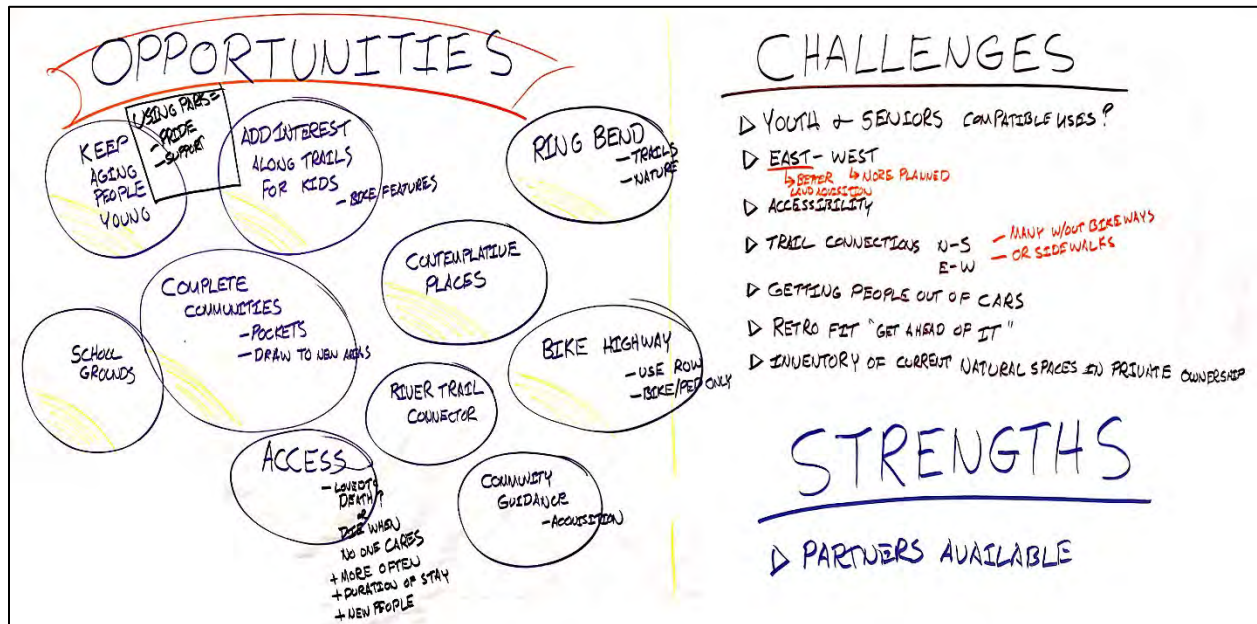 OPPORTUNITIES
KEEP
AGING
PEOPLE
YOUNG
USING PARKS =
- PRIDE
- SUPPORT
ADD INTEREST
ALONG TRAILS
FOR KIDS
- BIKE FEATURES
RING BEND
- TRAILS
- NATURE
COMPLETE
COMMUNITIES
- POCKETS
- DRAW TO NEW AREAS
CONTEMPLATIVE
PLACES
SCHOLL
GROUNDS
BIKE HIGHWAY
- USE ROW
- BIKE/PED ONLY
RIVER TRAIL
CONNECTOR
ACCESS
- LOVED TO
DEATH?
or
DIE WHEN
NO ONE CARES
+ MORE OFTEN
+ DURATION OF STAY
+ NEW PEOPLE
COMMUNITY
GUIDANCE
- ACQUISITION
CHALLENGES
▷ YOUTH & SENIORS COMPATIBLE USES?
▷ EAST - WEST
↳ BETTER ↳ MORE PLANNED
LAND AQUISITION
▷ ACCESSIBILITY
▷ TRAIL CONNECTIONS N-S - MANY W/OUT BIKEWAYS
E-W - OR SIDEWALKS
▷ GETTING PEOPLE OUT OF CARS
▷ RETRO FIT "GET AHEAD OF IT"
▷ INVENTORY OF CURRENT NATURAL SPACES IN PRIVATE OWNERSHIP
STRENGTHS
▷ PARTNERS AVAILABLE